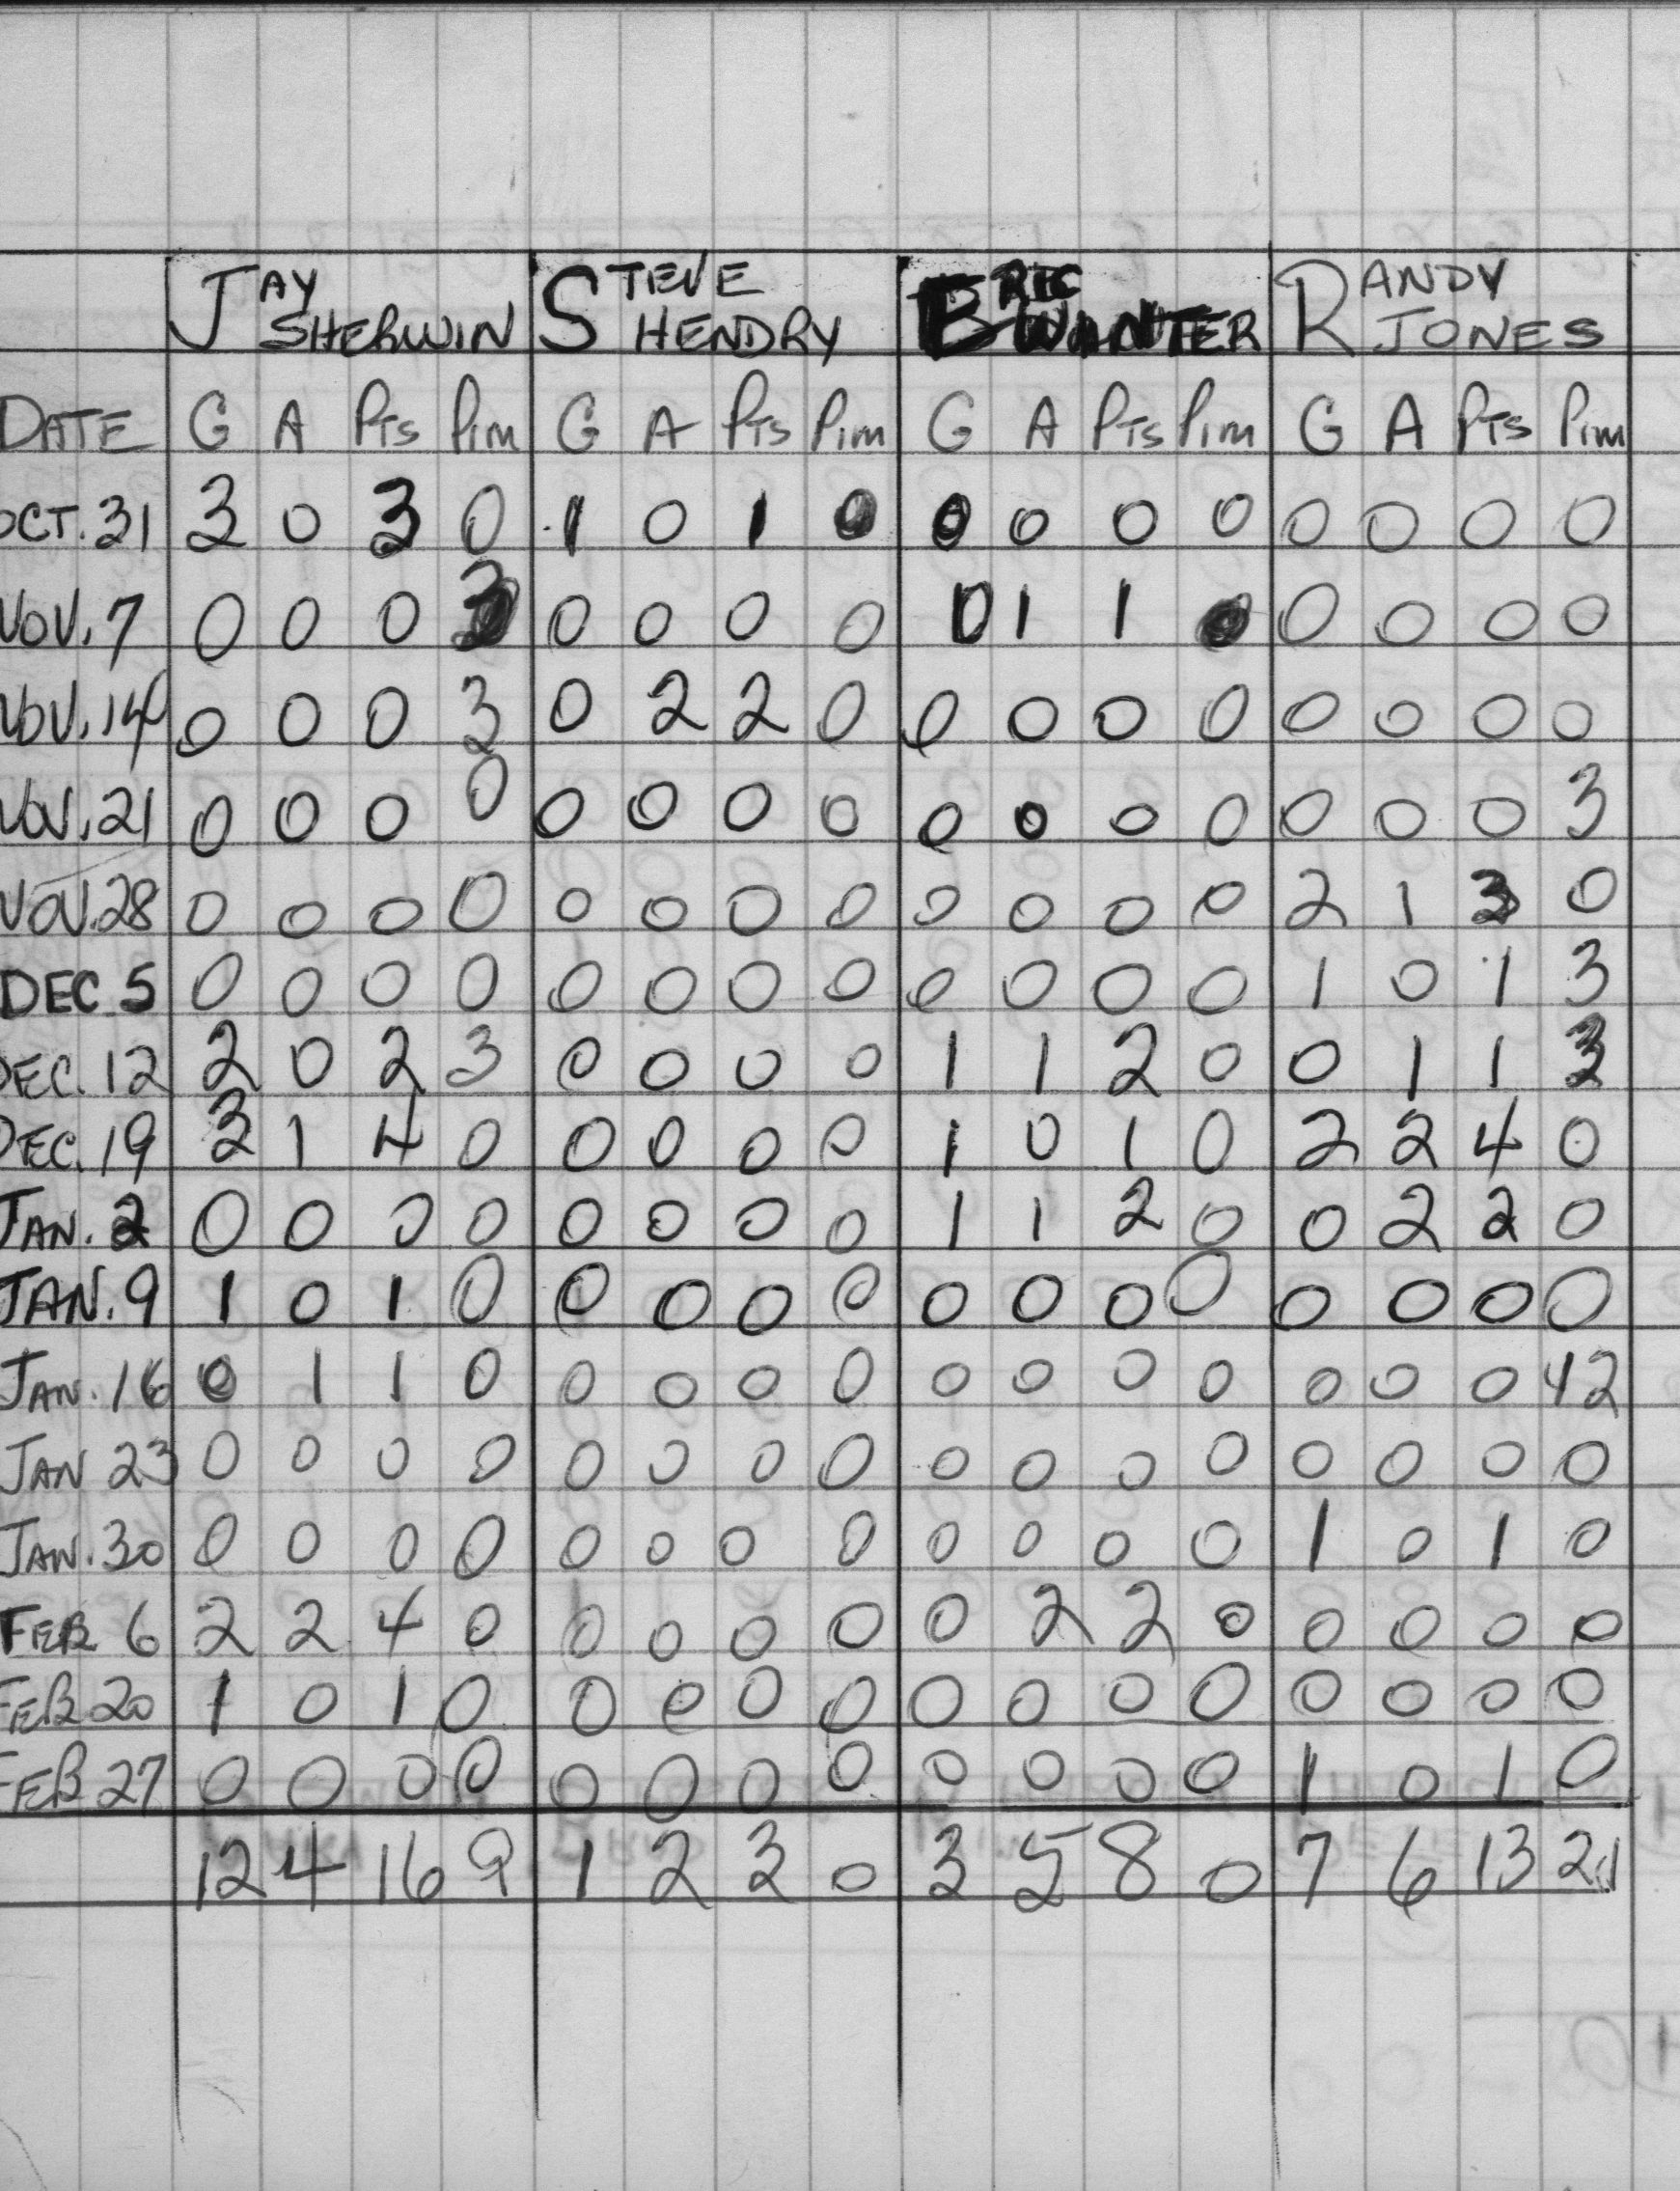 JAY STEVE ERIC RANDY
SHERWIN HENDRY WANTER JONES
DATE G A Pts Pim G A Pts Pim G A Pts Pim G A Pts Pim
OCT. 31 3 0 3 0 1 0 1 0 0 0 0 0 0 0 0 0
NOV. 7 0 0 0 3 0 0 0 0 0 1 1 0 0 0 0
NOV. 14 0 0 0 3 0 2 2 0 0 0 0 0 0 0 0 0
NOV. 21 0 0 0 0 0 0 0 0 0 0 0 0 0 0 0 3
NOV. 28 0 0 0 0 0 0 0 0 0 0 0 0 2 1 3 0
DEC 5 0 0 0 0 0 0 0 0 0 0 0 0 1 0 1 3
DEC. 12 2 0 2 3 0 0 0 0 1 1 2 0 0 1 1 3
DEC. 19 3 1 4 0 0 0 0 0 1 0 1 0 2 2 4 0
JAN. 2 0 0 0 0 0 0 0 0 1 1 2 0 0 2 2 0
JAN. 9 1 0 1 0 0 0 0 0 0 0 0 0 0 0 0 0
JAN. 16 0 1 1 0 0 0 0 0 0 0 0 0 0 0 0 12
JAN 23 0 0 0 0 0 0 0 0 0 0 0 0 0 0 0 0
JAN. 30 0 0 0 0 0 0 0 0 0 0 0 0 1 0 1 0
FEB 6 2 2 4 0 0 0 0 0 0 2 2 0 0 0 0 0
FEB 20 1 0 1 0 0 0 0 0 0 0 0 0 0 0 0 0
FEB 27 0 0 0 0 0 0 0 0 0 0 0 0 1 0 1 0
12 4 16 9 1 2 3 0 3 5 8 0 7 6 13 21